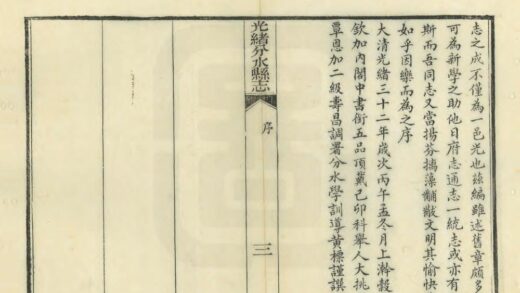 志之成不僅為一邑光也茲編雖述舊章頗多
可為新學之助他日府志通志一統志或亦有
斯而吾同志又當揚芬摛藻黼黻文明其愉快
如乎因樂而為之序
大清光緒三十二年歲次丙午孟冬月上澣穀
欽加內閣中書銜五品頂戴己卯科舉人大挑
覃恩加二級壽昌調署分水學訓導黃標謹譔
光緒分水縣志
序
三